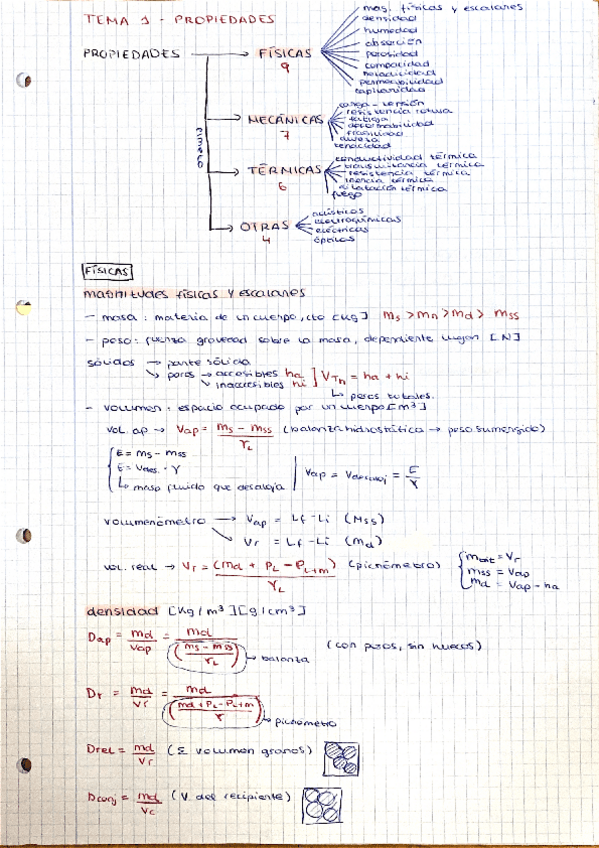 TEMA 1 - PROPIEDADES
PROPIEDADES
FÍSICAS
9
mag. físicas y escalares
densidad
humedad
absorción
porosidad
compacidad
permeabilidad
capilaridad
MECÁNICAS
7
carga - tensión
resistencia rotura
fatiga
deformabilidad
fragilidad
dureza
tenacidad
TÉRMICAS
6
conductividad térmica
transmitancia térmica
resistencia térmica
inercia térmica
dilatación térmica
fuego
OTRAS
4
acústicas
electroquímicas
eléctricas
ópticas
FÍSICAS
magnitudes físicas y escalares
- masa: materia de un cuerpo, cte [kg] ms > mh > md > mss
- peso: fuerza gravedad sobre la masa, dependiente lugar [N]
sólidos → parte sólida
poros → accesibles ha
inaccesibles hi
VTh = ha + hi
poros totales.
- volumen: espacio ocupado por un cuerpo [m³]
vol. ap → Vap = ms - mss / γL (balanza hidrostática → peso sumergido)
E = ms - mss
E = Vdes. · γ
masa fluido que desaloja
Vap = Vdesaloj = E / γ
volumenómetro → Vap = Lf - Li (Mss)
Vr = Lf - Li (Md)
vol. real → Vr = (md + PL - PL+m) / γL (picnómetro)
= Vr
mss = Vap
md = Vap - ha
densidad [Kg/m³] [g/cm³]
Dap = md / Vap = md / (ms - mss / γL) (con poros, sin huecos)
balanza
Dr = md / Vr = md / (md + PL - PL+m / γ)
picnómetro
Drel = md / Vr (Σ volumen granos)
Dconj = md / Vc (V del recipiente)